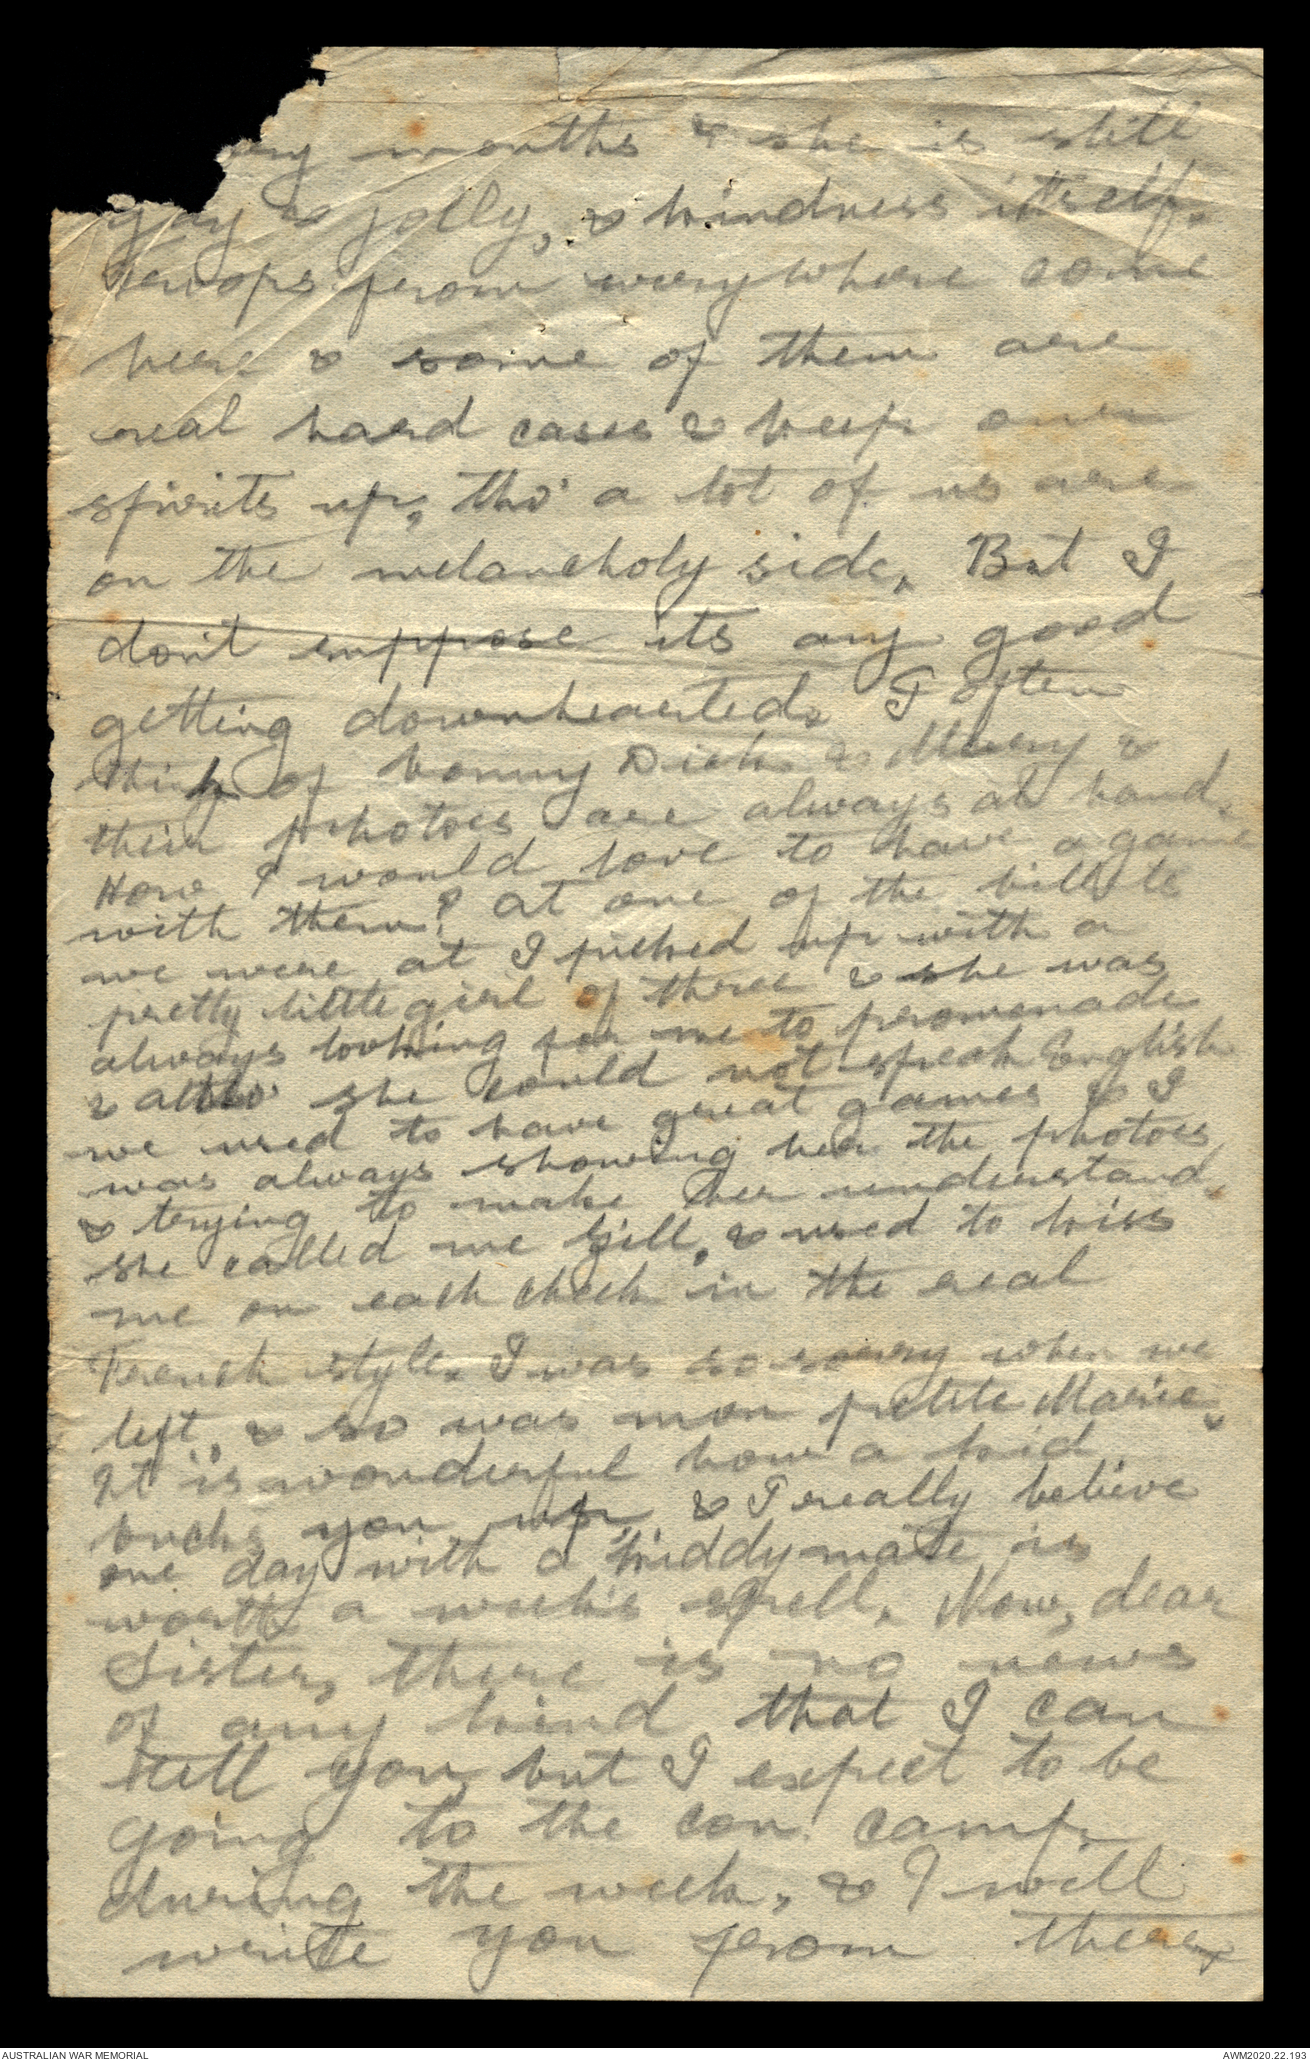 months & she is still
gay & jolly, & kindness itself.
Troops from everywhere come
here & some of them are
real hard cases & keep our
spirits up, tho' a lot of us are
on the melancholy side. But I
don't suppose its any good
getting downhearted. I often
think of bonny Dick & Mary &
their photoes are always at hand.
How I would love to have a game
with them! At one of the billets
we were at I picked up with a
pretty little girl of three & she was
always looking for me to promenade
& altho' she could not speak English
we used to have great games & I
was always showing her the photoes,
& trying to make her understand,
she called me Bill, & used to kiss
me on each cheek in the real
French style. I was so sorry when we
left, & so was mon petite Marie.
It is wonderful how a kid
bucks you up, & I really believe
one day with a kiddy mate is
worth a week's spell. Now, dear
Sister, there is no news
of any kind, that I can
tell you, but I expect to be
going to the con. camp
during the week, & I will
write you from there,
AUSTRALIAN WAR MEMORIAL
AWM2020.22.193